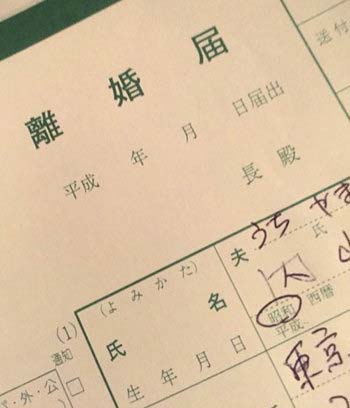 離婚届
送付
平成 年 月 日届出
長殿
(よみかた)
夫
うちやま
氏
氏 名
山
昭和 西暦
平成
(1)
通知
生年月日
東京
・外・公